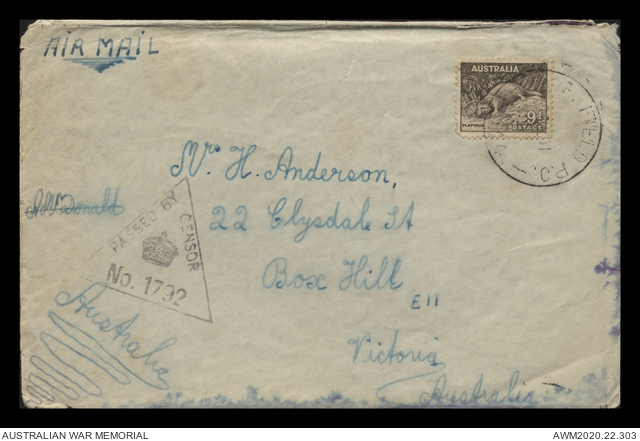 AIR MAIL
AUSTRALIA
9d
PLATYPUS POSTAGE
FIELD P.O.
Mrs H. Anderson,
22 Clysdale St
Box Hill
E11
Victoria
Australia
McDonald
PASSED BY CENSOR
No. 1792
Australia
AUSTRALIAN WAR MEMORIAL
AWM2020.22.303